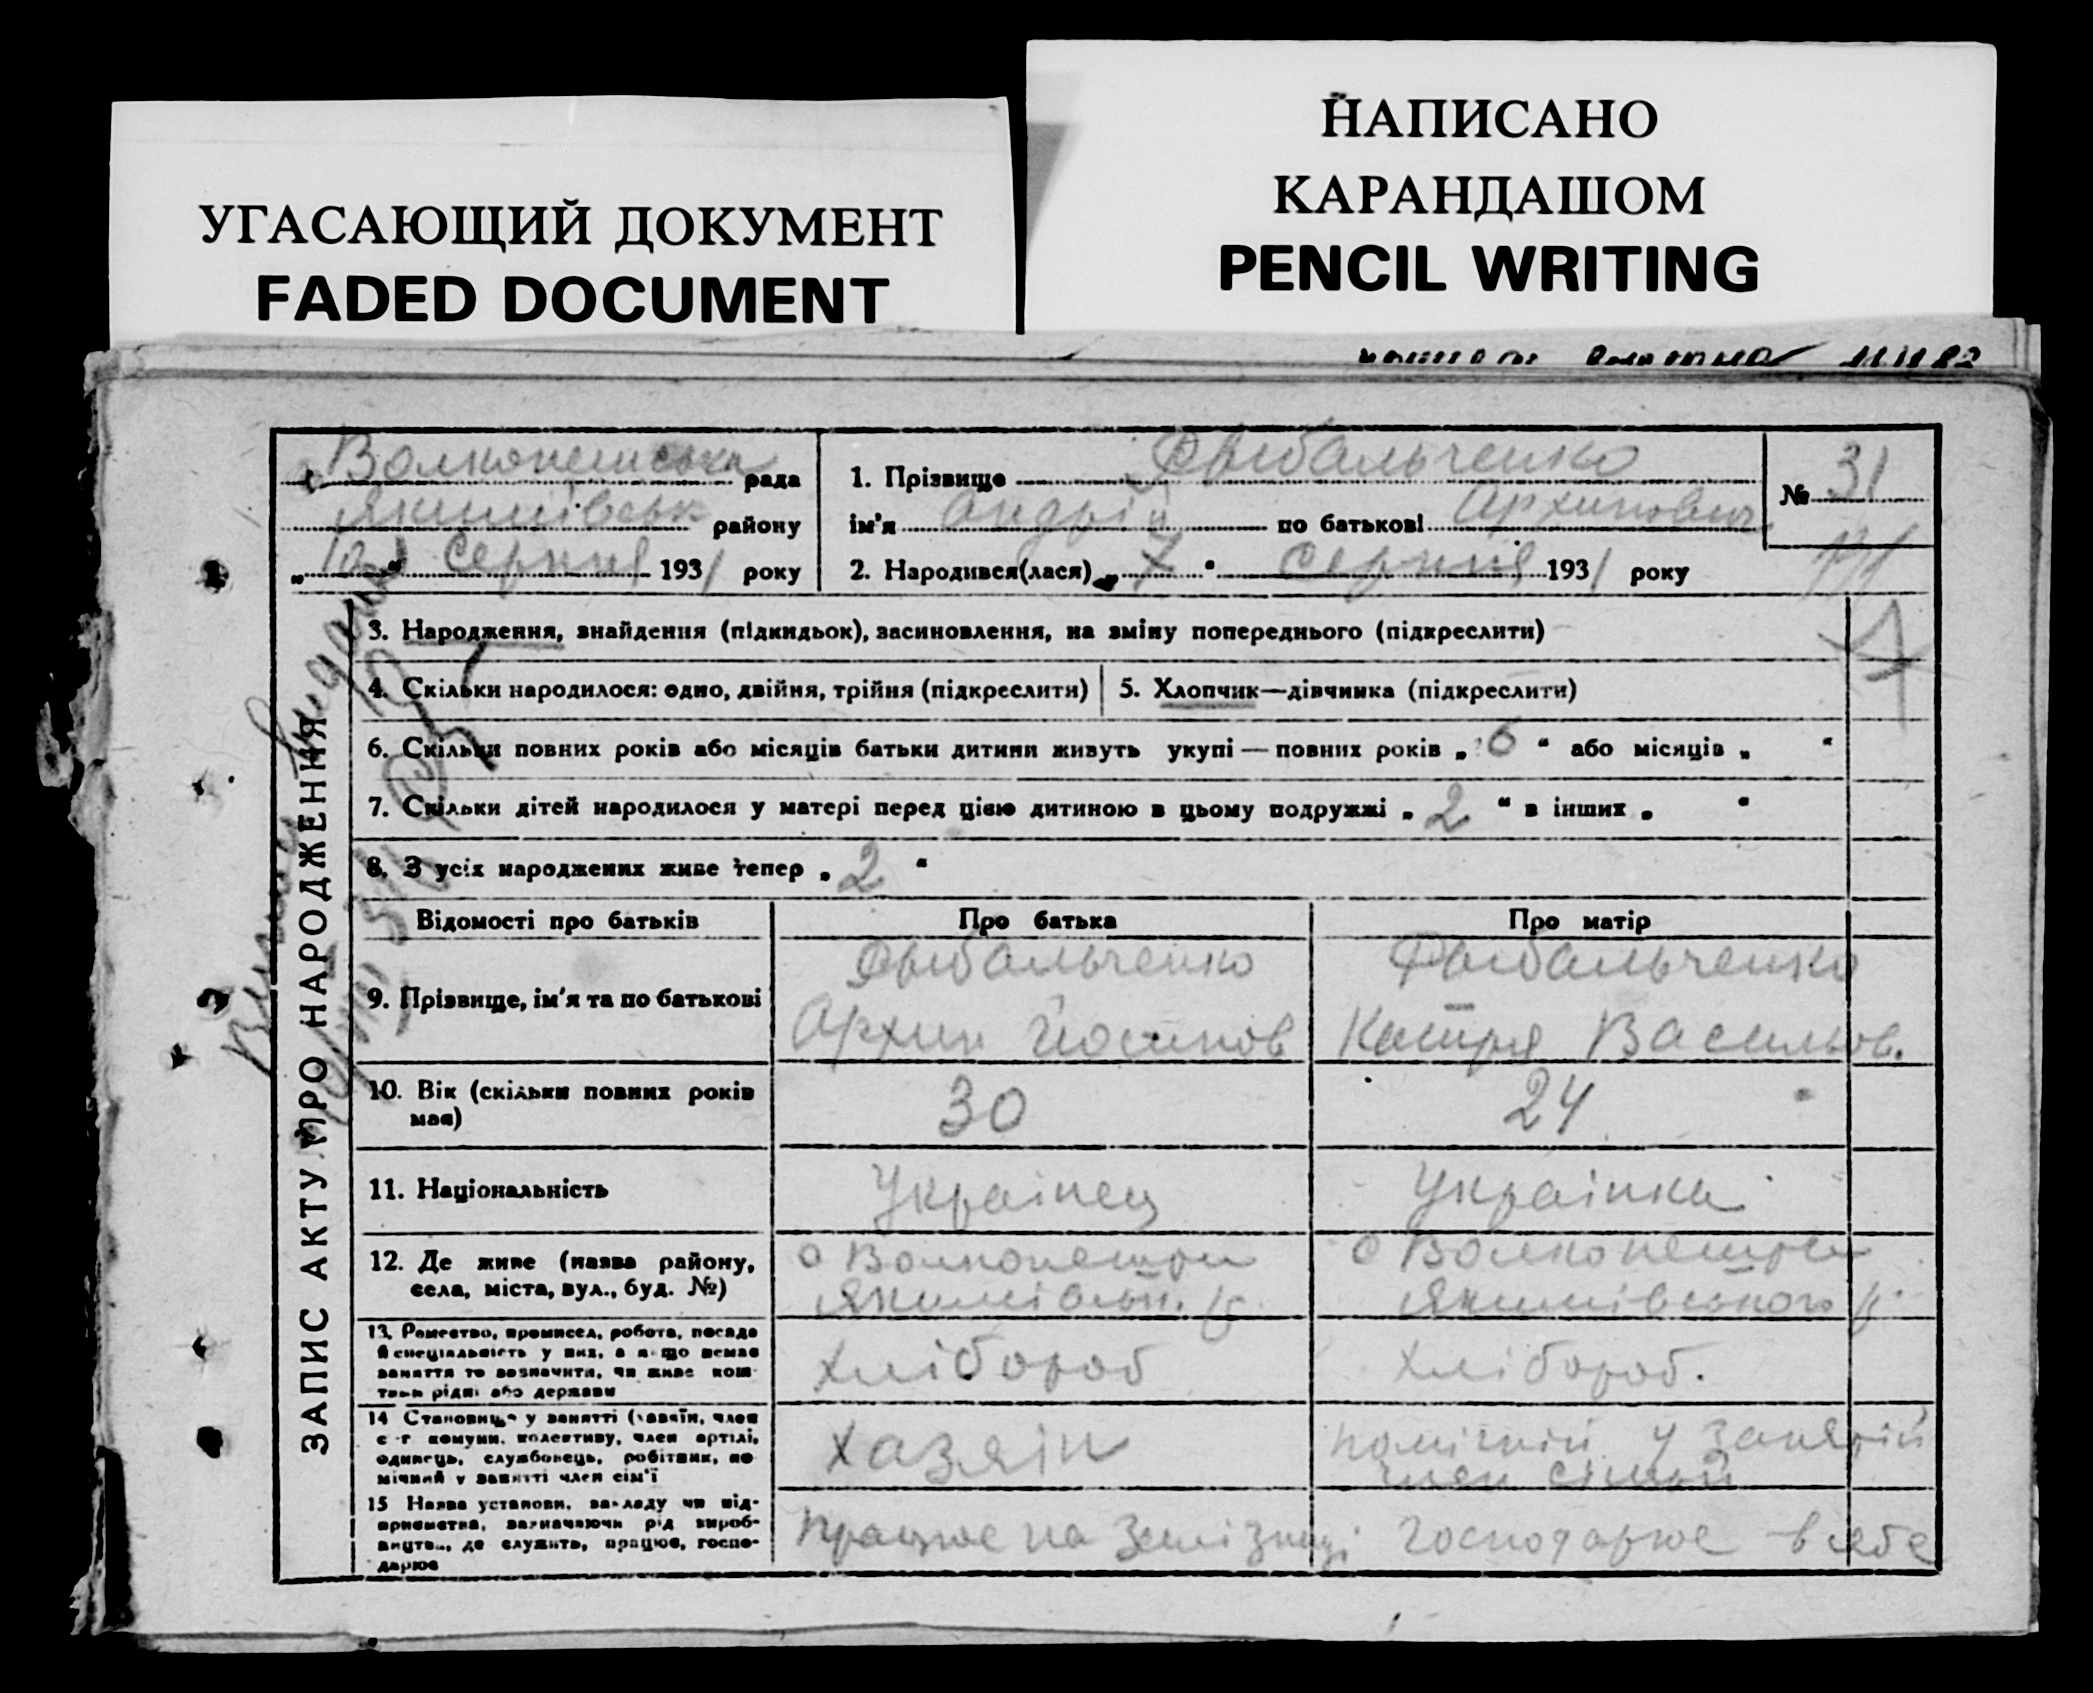 НАПИСАНО
КАРАНДАШОМ
PENCIL WRITING
УГАСАЮЩИЙ ДОКУМЕНТ
FADED DOCUMENT
Волконешська рада
Якимівськ району
„10“ Серпня 1931 року
1. Прізвище Рыбальченко
ім'я Андрій по батькові Архипович
2. Народився(лася) „7“ Серпня 1931 року
№ 31
ЗАПИС АКТУ ПРО НАРОДЖЕННЯ
3. Народження, знайдення (підкидьок), засиновлення, на зміну попереднього (підкреслити)
4. Скільки народилося: одно, двійня, трійня (підкреслити)
5. Хлопчик—дівчинка (підкреслити)
6. Скільки повних років або місяців батьки дитини живуть укупі — повних років „6“ або місяців „ “
7. Скільки дітей народилося у матері перед цією дитиною в цьому подружжі „2“ в інших „ “
8. З усіх народжених живе тепер „2“
Відомості про батьків
Про батька
Про матір
9. Прізвище, ім'я та по батькові
Рыбальченко
Архип Йосипов
Рыбальченко
Катря Васильов.
10. Вік (скільки повних років має)
30
24
11. Національність
Українец
Українка
12. Де живе (назва району, села, міста, вул., буд. №)
с Волконешти
Якимівськ. р.
с Волконешти
Якимівського р.
13. Ремество, промисел, робота, посада
й спеціяльність у них, а якщо немає
заняття то зазначити, чи живе кош-
тами рідні або держави
хлібороб
хлібороб.
14 Становище у занятті (хазяїн, член
с-г комуни, колективу, член артілі,
одинець, службовець, робітник, по
мічний у занятті член сім'ї
хазяін
помічний у занятій
член сімьи
15 Назва установи, закладу чи під-
приємства, зазначаючи рід вироб-
ництва, де служить, працює, госпо-
дарює
працює на Залізниці
господарює в себе